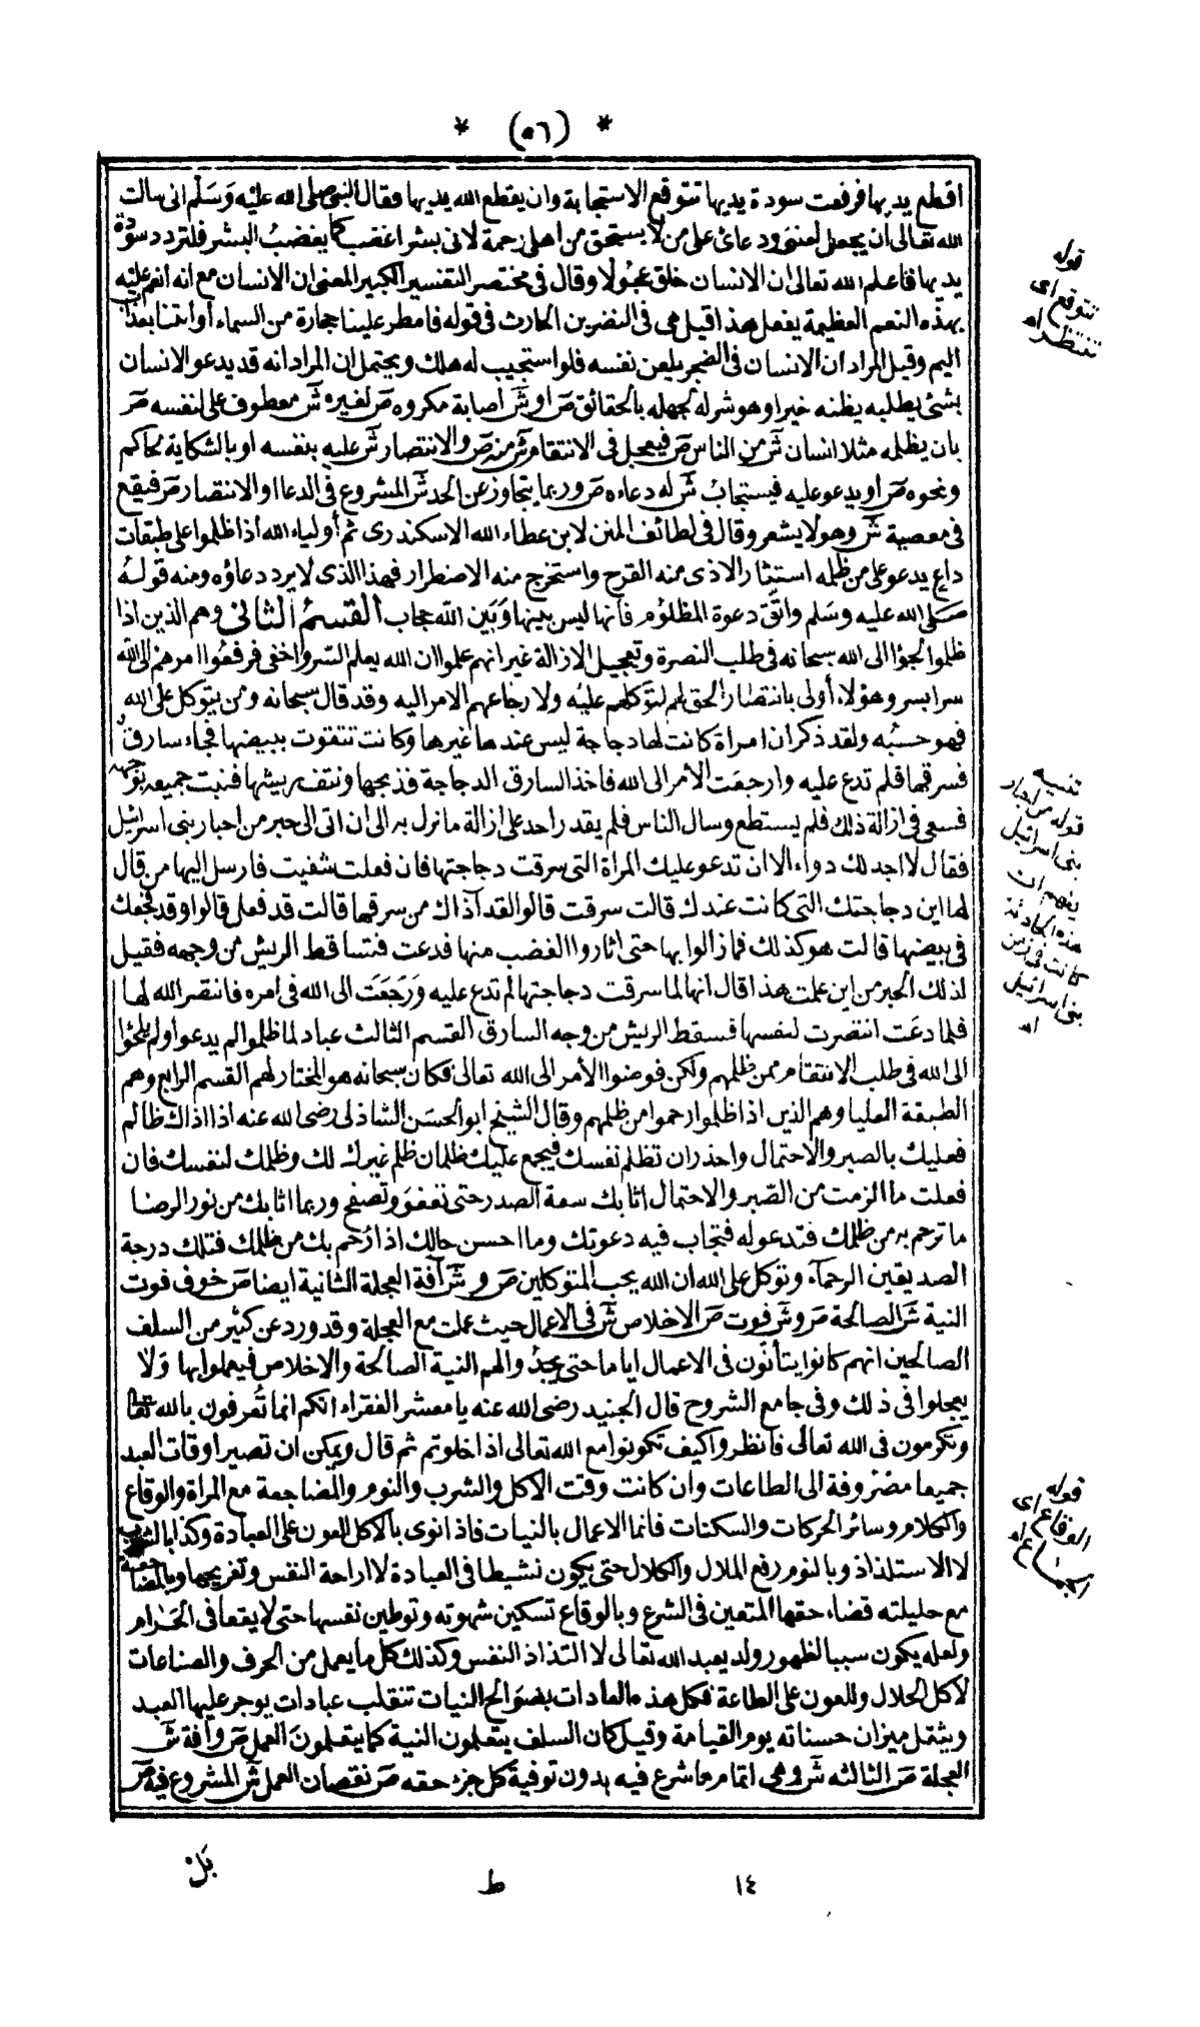 * (٥٦) *
اقطع يديها فرفعت سودة يديها تتوقع الاستجابة وان يقطع الله يديها فقال النبي صلى الله عليه وسلم انى سالت
الله تعالى أن يجعل لعنتى ودعائ على من لا يستحق من اهلى رحمة لانى بشر اغضب كما يغضب البشر فلتردد سودة
يديها فاعلم الله تعالى ان الانسان خلق عجولا وقال فى مختصر التفسير الكبير المعنى ان الانسان مع انه انعم عليه
بهذه النعم العظيمة يفعل هذا قيل هى فى النضر بن الحارث فى قوله فامطر علينا حجارة من السماء أو ائتنا بعذاب
اليم وقيل المراد ان الانسان فى الضجر يلعن نفسه فلو استجيب له هلك ويحتمل ان المراد انه قد يدعو الانسان
بشئ يطلبه يظنه خيرا وهو شر له لجهله بالحقائق ص او ش اصابة مكروه ص لغيره ش معطوف على لنفسه ص
بان يظلمه مثلا انسان ش من الناس ص فيعجل فى الانتقام ش منه ص والانتصار ش عليه بنفسه او بالشكاية لحاكم
ونحوه ص أو يدعو عليه فيستجاب ش له دعاءه ص وربما يتجاوز عن الحد ش المشروع فى الدعا او الانتصار ص فيقع
فى معصية ش وهو لا يشعر وقال فى لطائف المنن لابن عطاء الله الاسكندرى ثم أولياء الله اذا ظلموا على طبقات
داع يدعو على من ظلمه استثار الاذى منه القرح واستخرج منه الاضطرار فهذا الذى لا يرد دعاؤه ومنه قوله
صلى الله عليه وسلم واتق دعوة المظلوم فانها ليس بينها وبين الله حجاب القسم الثانى وهم الذين اذا
ظلموا لجؤا الى الله سبحانه فى طلب النصرة وتعجيل الازالة غير انهم علموا ان الله يعلم السر واخفى فرفعوا امرهم الى الله
سرا بسر وهؤلاء أولى بانتصار الحق لهم لتوكلهم عليه ولا رجاعهم الامر اليه وقد قال سبحانه ومن يتوكل على الله
فهو حسبه ولقد ذكر ان امراة كانت لها دجاجة ليس عندها غيرها وكانت تتقوت ببيضها فجاء سارق
فسرقها فلم تدع عليه وارجعت الأمر الى الله فاخذ السارق الدجاجة فذبحها ونتف ريشها فنبت جميعه بوجهه
فسعى فى ازالة ذلك فلم يستطع وسال الناس فلم يقدر احد على ازالة ما نزل به الى ان اتى الى حبر من احبار بنى اسرائيل
فقال لا اجد لك دواء الا ان تدعو عليك المراة التى سرقت دجاجتها فان فعلت شفيت فارسل اليها من قال
لها اين دجاجتك التى كانت عندك قالت سرقت قالوا لقد آذاك من سرقها قالت قد فعل قالوا وقد فجعك
فى بيضها قالت هو كذلك فما زالوا بها حتى اثاروا الغضب منها فدعت فتساقط الريش من وجهه فقيل
لذلك الحبر من اين علمت هذا قال انها لما سرقت دجاجتها لم تدع عليه ورجعت الى الله فى امره فانتصر الله لها
فلما دعت انتصرت لنفسها فسقط الريش من وجه السارق القسم الثالث عباد لما ظلموا لم يدعوا ولم يلجؤا
الى الله فى طلب الانتقام ممن ظلمهم ولكن فوضوا الأمر الى الله تعالى فكان سبحانه هو المختار لهم القسم الرابع وهم
الطبقة العليا وهم الذين اذا ظلموا رحموا من ظلمهم وقال الشيخ ابو الحسن الشاذلى رضى الله عنه اذا اذاك ظالم
فعليك بالصبر والاحتمال واحذر ان تظلم نفسك فيجمع عليك ظلمان ظلم غيرك لك وظلمك لنفسك فان
فعلت ما الزمت من الصبر والاحتمال اثابك سعة الصدر حتى تعفو وتصفح وربما اثابك من نور الرضا
ما ترحم به من ظلمك فتدعو له فتجاب فيه دعوتك وما احسن حالك اذا رحم بك من ظلمك فتلك درجة
الصديقين الرحماء وتوكل على الله ان الله يحب المتوكلين ص و ش آفة العجلة الثانية ايضا ص خوف فوت
النية ش الصالحة ص و ش فوت ص الاخلاص ش فى الاعمال حيث عملت مع العجلة وقد ورد عن كثير من السلف
الصالحين انهم كانوا يتأنون فى الاعمال اياما حتى يجدوا لهم النية الصالحة والاخلاص فيعملوا بها ولا
يعجلوا فى ذلك وفى جامع الشروح قال الجنيد رضى الله عنه يا معشر الفقراء انكم انما تعرفون بالله تعالى
وتكرمون فى الله تعالى فانظروا كيف تكونوا مع الله تعالى اذا خلوتم ثم قال ويمكن ان تصير اوقات العبد
جميعا مصروفة الى الطاعات وان كانت وقت الاكل والشرب والنوم والمضاجعة مع المراة والوقاع
والكلام وسائر الحركات والسكنات فانما الاعمال بالنيات فاذا نوى بالاكل العون على العبادة وكذا بالشرب
لا الاستلذاذ وبالنوم رفع الملال والكلال حتى يكون نشيطا فى العبادة لا اراحة النفس وتفريحها وبالمضاجعة
مع حليلته قضاء حقها المتعين فى الشرع وبالوقاع تسكين شهوته وتوطين نفسها حتى لا يقعا فى الحرام
ولعله يكون سببا لظهور ولد يعبد الله تعالى لا التذاذ النفس وكذلك كل ما يعمل من الحرف والصناعات
لأكل الحلال وللعون على الطاعة فكل هذه العادات بصوالح النيات تنقلب عبادات يوجر عليها العبد
ويثقل ميزان حسناته يوم القيامة وقيل كان السلف يتعلمون النية كما يتعلمون العمل ص وآفة ش
العجلة ص الثالثه ش وهى اتمام ما شرع فيه بدون توفية كل جزء حقه ص نقصان العمل ش المشروع فيه ص
قوله
تتوقع اى
تنتظر اه
تنبيه
قوله من احبار
بنى اسرائيل
يفهم ان
هذه الحادثة
كانت فى زمن
بنى اسرائيل
اه
قوله
الوقاع اى
الجماع اه
١٤
ط
بل